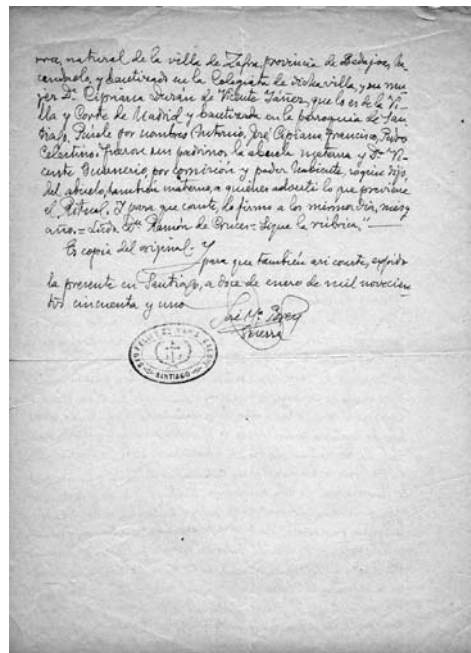 rroa, natural de la villa de Zafra, provincia de Badajoz, ha-
cendado, y bautizado en la Colegiata de dicha villa, y su mu-
jer Dª Cipriana Durán de Vicente Yáñez, que lo es de la Vi-
lla y Corte de Madrid y bautizada en la parroquia de San-
tiago. Púsele por nombres Antonio, José Cipriano Francisco, Pedro
Celestino. Fueron sus padrinos la abuela materna y Dn Vi-
cente por comisión y poder habiente, según dijo,
del abuelo, también materno, a quienes advertí lo que previene
el Ritual. Y para que conste, lo firmo a los mismos día, mes y
año.= Licdo. Dn Ramón de = Sigue la rúbrica." —
Es copia del original. Y
para que también así conste, expido
la presente en Santiago, a doce de enero de mil novecien-
tos cincuenta y uno
José Mª Pérez